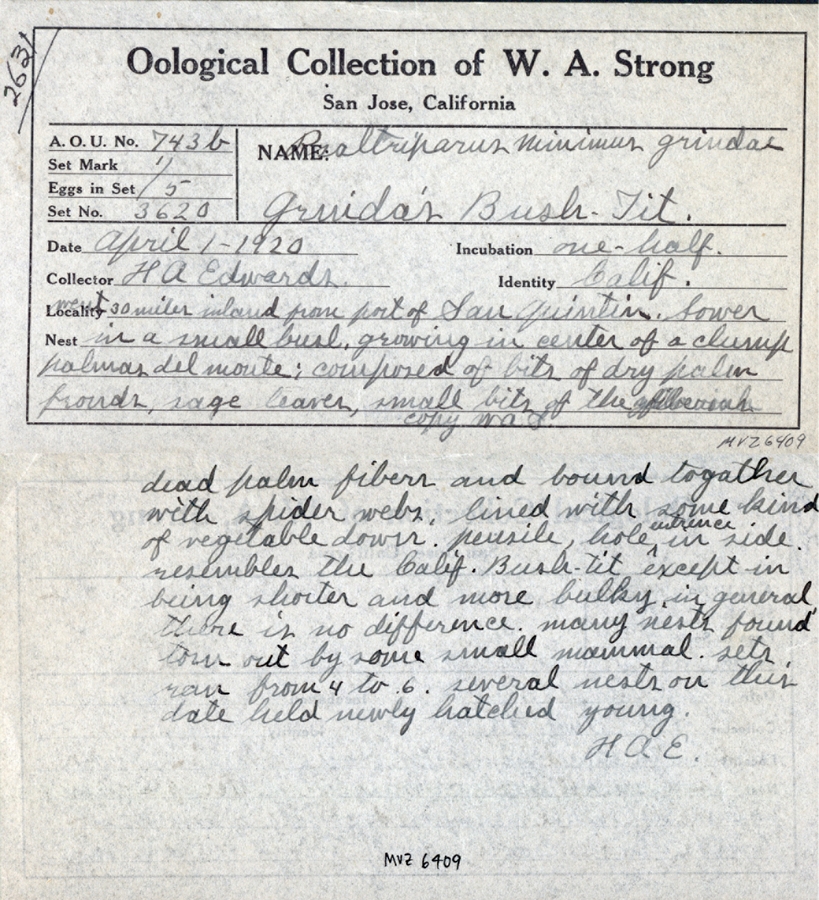 2631
Oological Collection of W. A. Strong
San Jose, California
A. O. U. No. 743b
NAME: Psaltriparus minimus grindae
Set Mark 1/
Eggs in Set /5
Set No. 3620
Grinda's Bush-Tit.
Date April 1-1920 Incubation one-half.
Collector H A Edwards. Identity Calif.
Locality 30 miles inland from port of San Quintin. Lower
Nest in a small bush, growing in center of a clump
palmas del monte; composed of bits of dry palm
fronds, sage leaves, small bits of the
copy WAS
MVZ6409
dead palm fibers and bound togather
with spider webs, lined with some kind
of vegetable down. pensile, hole entrence in side.
resembles the Calif. Bush-tit except in
being shorter and more bulky, in general
there is no difference. many nests found
torn out by some small mammal. sets
ran from 4 to 6. several nests on this
date held newly hatched young.
H A E.
MVZ 6409